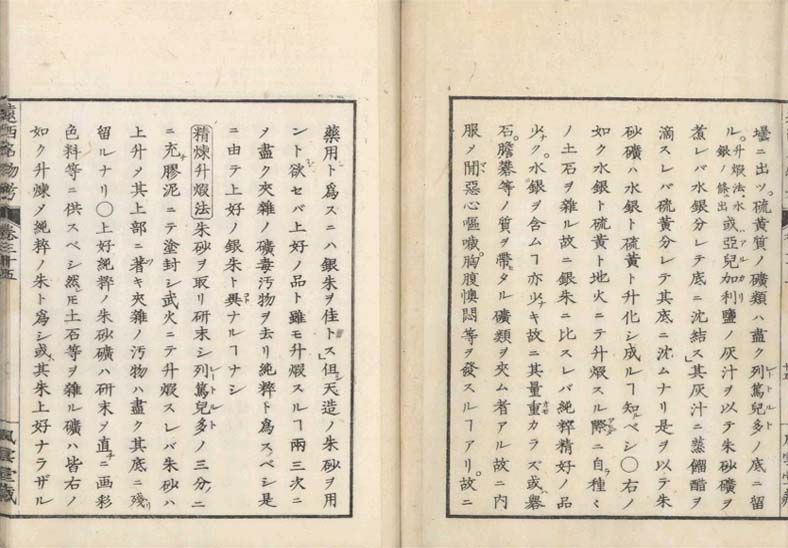 壜ニ出ツ。硫黄質ノ礦類ハ盡ク列篤兒多ノ底ニ留
ル。升煆法水銀ノ條出或亞兒加利鹽ノ灰汁ヲ以テ朱砂礦ヲ
煮レバ水銀分レテ底ニ沈結ス」其灰汁ニ蒸餾醋ヲ
滴スレバ硫黄分レテ其底ニ沈ムナリ是ヲ以テ朱
砂礦ハ水銀ト硫黄ト升化シ成ルヿ知ベシ○右ノ
如ク水銀ト硫黄ト地火ニテ升煆スル際ニ自種々
ノ土石ヲ雜ル故ニ銀朱ニ比スレバ純粹精好ノ品
少ク。水銀ヲ含ムヿ亦少キ故ニ其量重カラズ或礜
石膽礬等ノ質ヲ帶タル礦類ヲ夾ム者アル故ニ内
服ノ間惡心嘔噦胸腹懊悶等ヲ發スルヿアリ。故ニ
藥用ト爲スニハ銀朱ヲ佳トス」但天造ノ朱砂ヲ用
ント欲セバ上好ノ品ト雖モ升煆スルヿ兩三次ニ
メ盡ク夾雜ノ礦毒汚物ヲ去リ純粹ト爲スベシ是
ニ由テ上好ノ銀朱ト異ナルヿナシ
精煉升煆法 朱砂ヲ取リ研末シ列篤兒多ノ三分二
ニ充膠泥ニテ塗封シ武火ニテ升煆スレバ朱砂ハ
上升メ其上部ニ著キ夾雜ノ汚物ハ盡ク其底ニ殘
留ルナリ○上好純粹ノ朱砂礦ハ研末メ直ニ画彩
色料等ニ供スベシ然𪜈土石等ヲ雜ル礦ハ皆右ノ
如ク升煉メ純粹ノ朱ト爲シ或其朱上好ナラザル
遠西名物考 卷之三十五 風雲堂藏